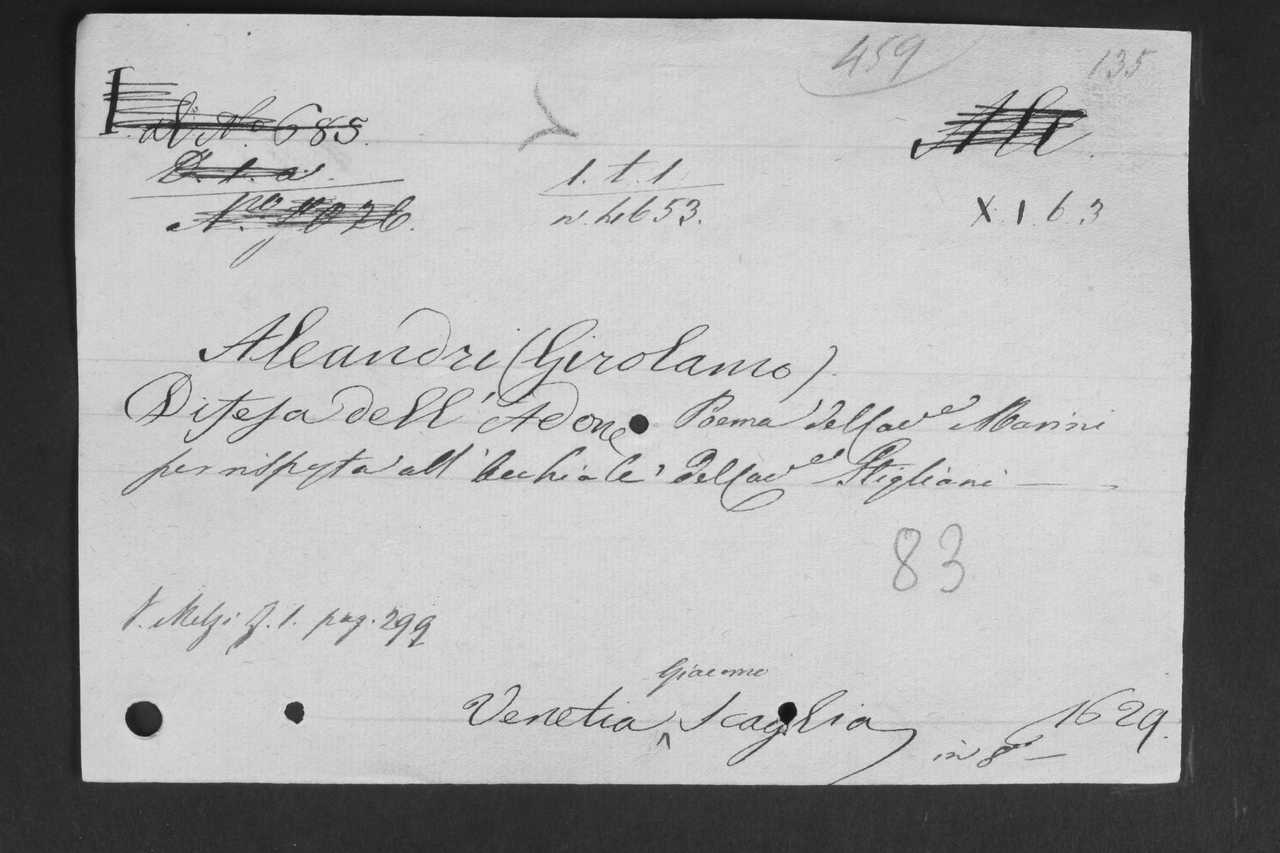 459
135
al No 685.
D. 1. a.
1. t. 1
Ali
X. 1. 6. 3
Aleandri (Girolamo).
Difesa dell'Adone Poema del Cav.er Marini
per risposta all'Occhiale del Cav.er Stigliani —
83
V. Melzi f. 1. pag. 299
Giacomo
Venetia, Scaglia 1629.
in 8°